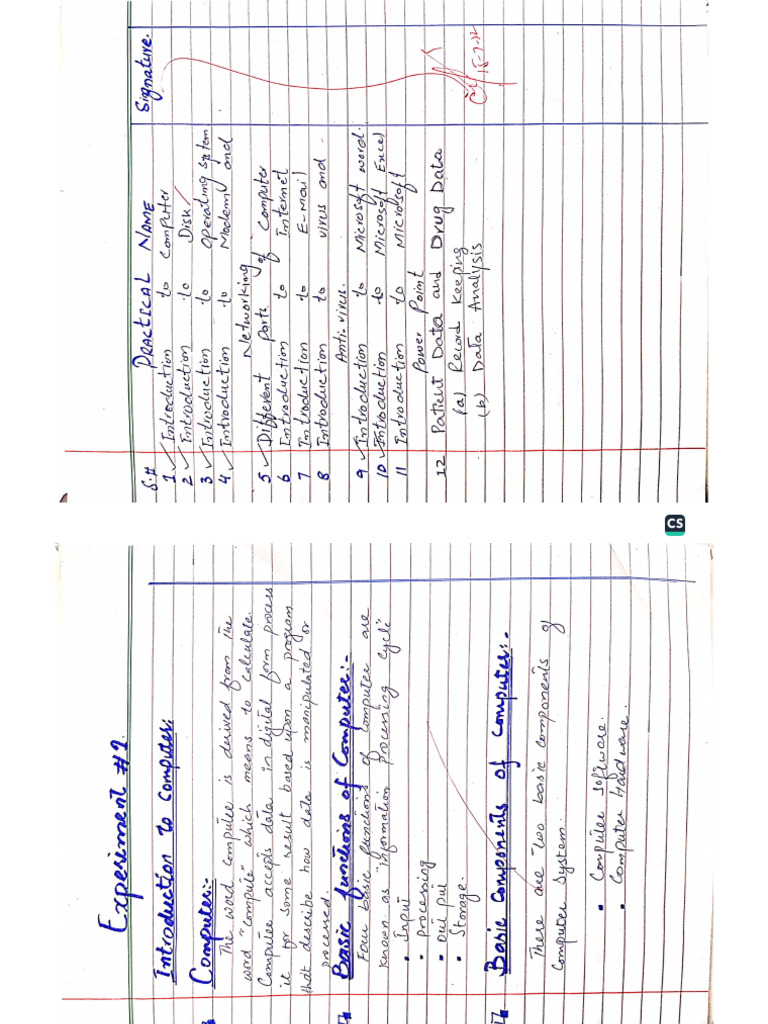 S.# PRACTICAL NAME Signature.
1 Introduction to Computer
2 Introduction to Disk
3 Introduction to Operating System
4 Introduction to Modem and
Networking
5 Different Parts of Computer
6 Introduction to Internet
7 Introduction to E-Mail
8 Introduction to virus and
Anti virus.
9 Introduction to Microsoft word.
10 Introduction to Microsoft Excel
11 Introduction to Microsoft
Power Point
12 Patient Data and Drug Data
(a) Record Keeping
(b) Data Analysis
CS
Experiment #1
Introduction to Computer:
Computer:-
The word computer is derived from the
word "compute" which means to calculate.
Computer accepts data in digital form process
it for some result based upon a program
that describe how data is manipulated or
processed.
Basic functions of Computer:-
Four basic functions of computer are
known as information processing cycle
• Input
• Processing
• Out put
• Storage.
Basic Components of Computer:-
There are two basic components of
Computer System.
• Computer software.
• Computer hardware.